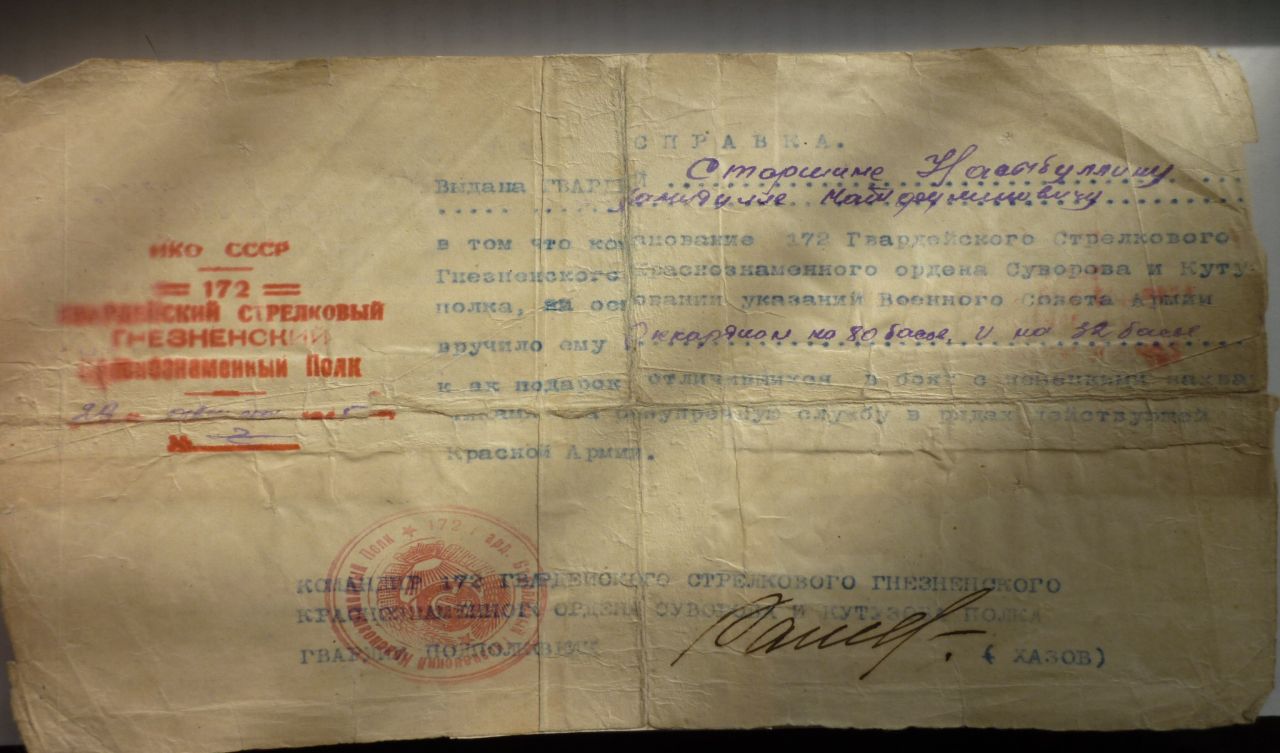 НКО СССР
172
ГВАРДЕЙСКИЙ СТРЕЛКОВЫЙ
ГНЕЗНЕНСКИЙ
Полк
№ 2
СПРАВКА.
Выдана ГВАРДИИ Старшине
в том что командование 172 Гвардейского Стрелкового
Гнезненского Краснознаменного ордена Суворова и Куту
полка, на основании указаний Военного Совета Армии
вручило ему Аккардион на 80 басов и на 32 баса
к ак подарок отличившимся в боях с немецкими захва
безупречную службу в рядах действующей
Красной Армии.
КОМАНДИР 172 ГВАРДЕЙСКОГО СТРЕЛКОВОГО ГНЕЗНЕНСКОГО
КРАСНОЗНАМЕННОГО ОРДЕНА СУВОРОВА И КУТУЗОВА ПОЛКА
ГВАРДИИ ПОДПОЛКОВНИК ( ХАЗОВ)